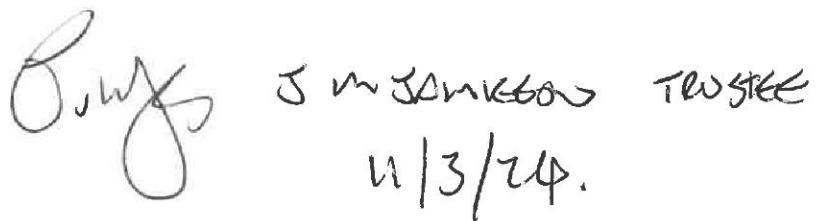 J M JAMIESON TRUSTEE
11/3/24.